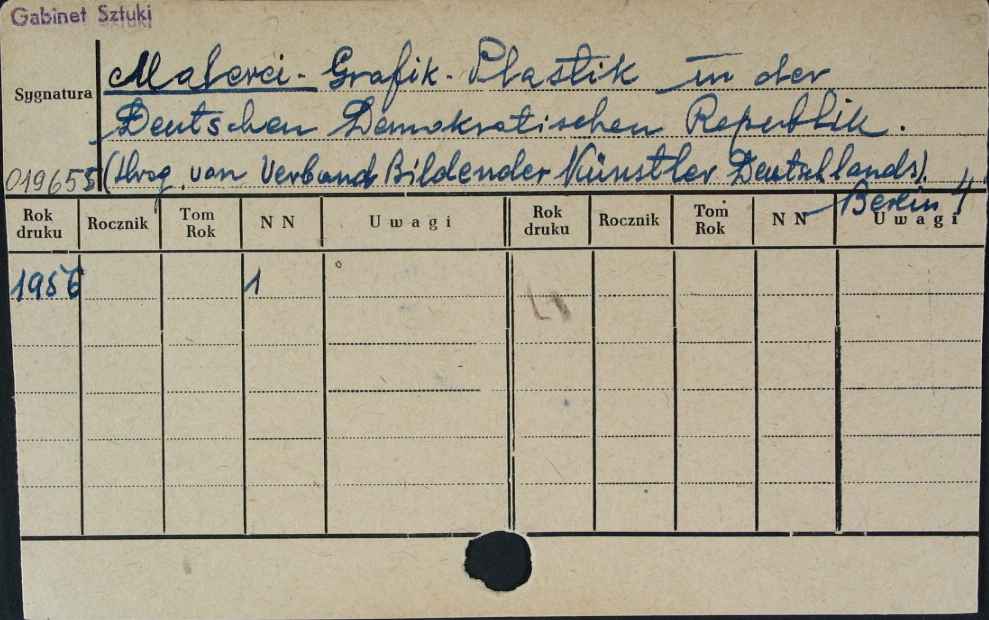 Gabinet Sztuki
Malerei - Grafik - Plastik in der
Sygnatura
Deutschen Demokratischen Republik.
019655 (Hrsg. von Verband Bildender Künstler Deutschlands).
Berlin
Rok druku Rocznik Tom Rok NN Uwagi Rok druku Rocznik Tom Rok NN Uwagi
1956 1